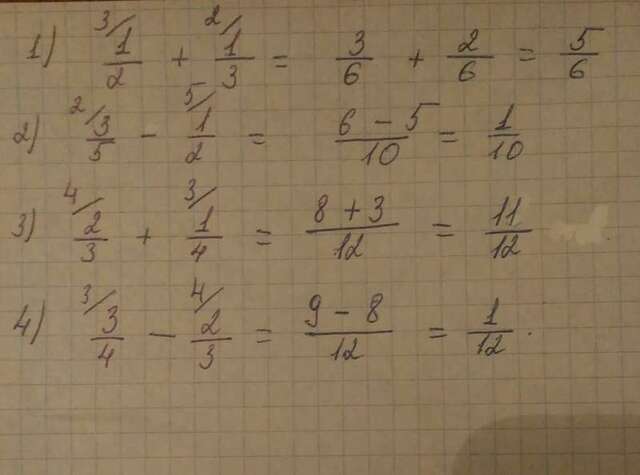 1) 3/ 1/2 + 2/ 1/3 = 3/6 + 2/6 = 5/6
2) 2/ 3/5 - 5/ 1/2 = 6 - 5/10 = 1/10
3) 4/ 2/3 + 3/ 1/4 = 8 + 3/12 = 11/12
4) 3/ 3/4 - 4/ 2/3 = 9 - 8/12 = 1/12.